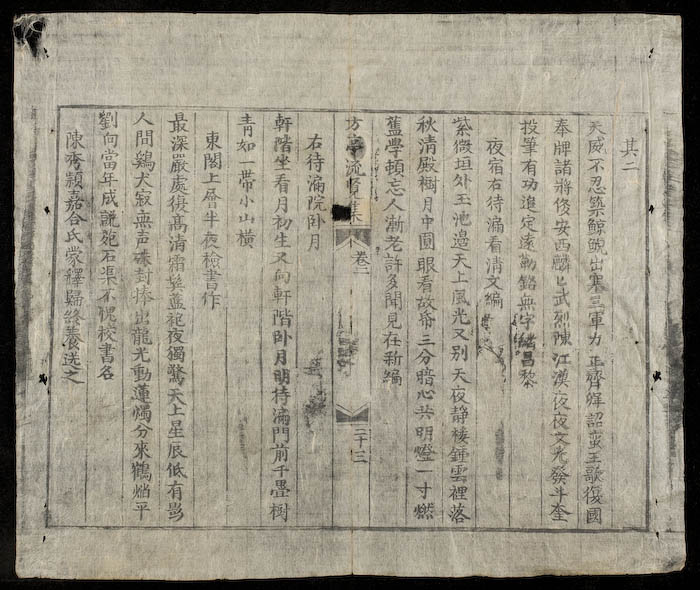 其二
天威不忍築鯨鯢出塞三軍力正齊蟬詔蛮王歌復國
奉牌諸將俊安西麟匕武烈陳江漢夜夜文光發斗奎
投筆有功追定遠勒銘無字繼昌黎
夜宿右待漏看清文編
紫微垣外玉池邉天上風光又别天夜静楼鍾雲裡落
秋清殿樹月中圓眼看故帋三分暗心共明燈一寸燃
舊學頓忘人漸老許多聞見在新編
方亭流覧集
卷二
二十三
右待漏院卧月
軒階坐看月初生又向軒階卧月明待漏門前千畳樹
青如一帯小山横
東閣上層半夜檢書作
最深嚴處復髙清霜氅藍袍夜獨驚天上星辰低有影
人間鷄犬寂無声牒封捧出龍光動蓮燭分來鶴焔平
劉向當年成説苑石渠不愧校書名
陳秀穎嘉合氏蒙釋歸終養送之